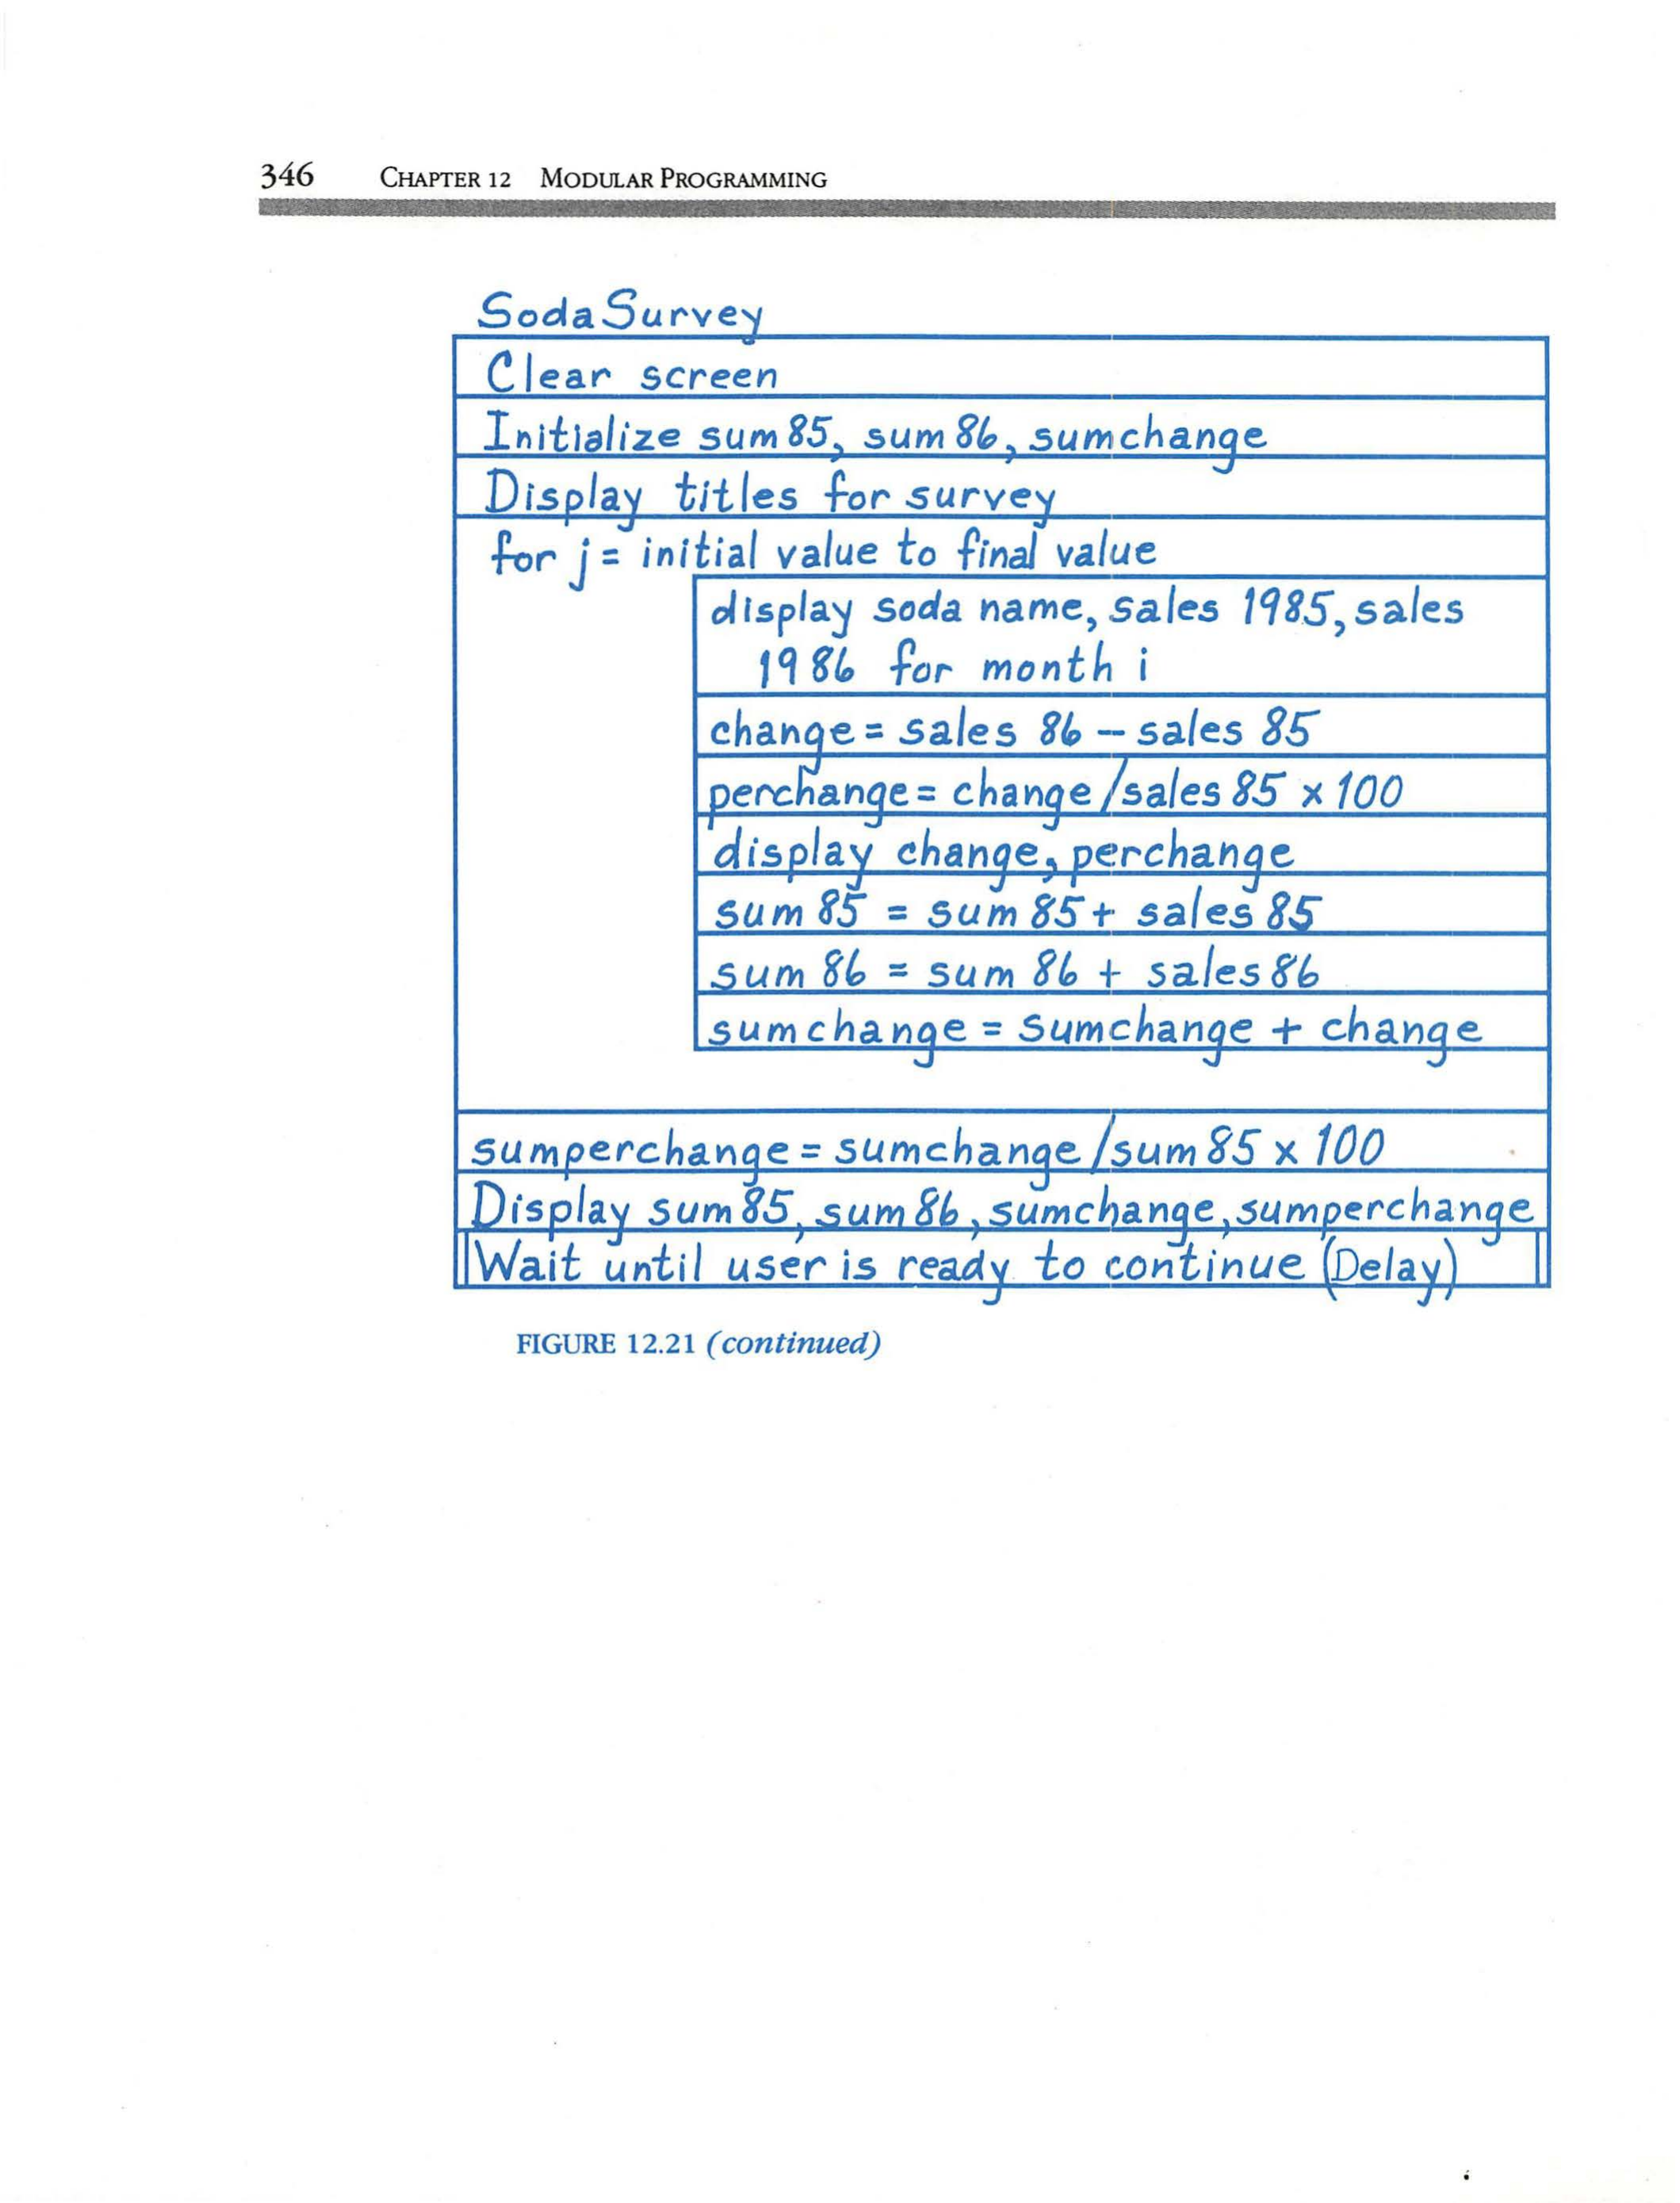 346 CHAPTER 12 MODULAR PROGRAMMING
Soda Survey
Clear screen
Initialize sum 85, sum 86, sumchange
Display titles for survey
for j = initial value to final value
display soda name, sales 1985, sales
1986 for month i
change = sales 86 - sales 85
perchange = change / sales 85 x 100
display change, perchange
sum 85 = sum 85 + sales 85
sum 86 = sum 86 + sales 86
sumchange = sumchange + change
sumperchange = sumchange / sum 85 x 100
Display sum 85, sum 86, sumchange, sumperchange
Wait until user is ready to continue (Delay)
FIGURE 12.21 (continued)